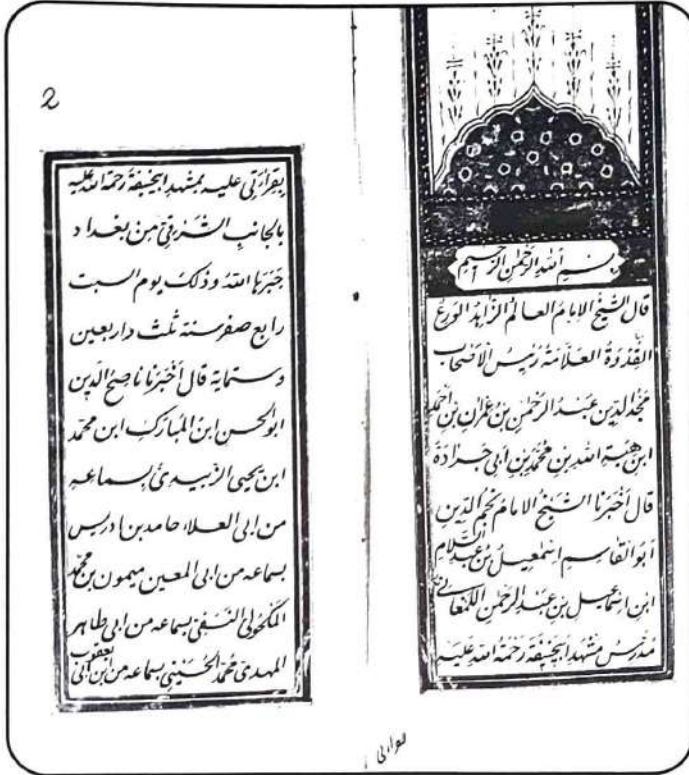 بسم الله الرحمن الرحيم
قال الشيخ الامام العالم الزاهد الورع
القدوة العلامة رئيس الاصحاب
مجد الدين عبد الرحمن بن عمران بن احمد
ابن هبة الله بن محمد بن ابي جرادة
قال أخبرنا الشيخ الامام نجم الدين
أبو القاسم اسمعيل بن عبد السلام
ابن اسماعيل بن عبد الرحمن اللمغاني
مدرس مشهد ابيحنيفة رحمة الله عليه
بقراءتي
2
بقراءتي عليه بمشهد ابيحنيفة رحمة الله عليه
بالجانب الشرقي من بغداد
جبرها الله وذلك يوم السبت
رابع صفر سنة ثلث واربعين
وستماية قال أخبرنا ناصح الدين
ابو الحسن ابن المبارك ابن محمد
ابن يحيى الزبيدي بسماعه
من ابى العلاء حامد بن ادريس
بسماعه من ابى المعين ميمون بن محمد
المكحولى النسفى بسماعه من ابى طاهر
المهدى محمد الحسينى بسماعه من ابن ابى يعقوب